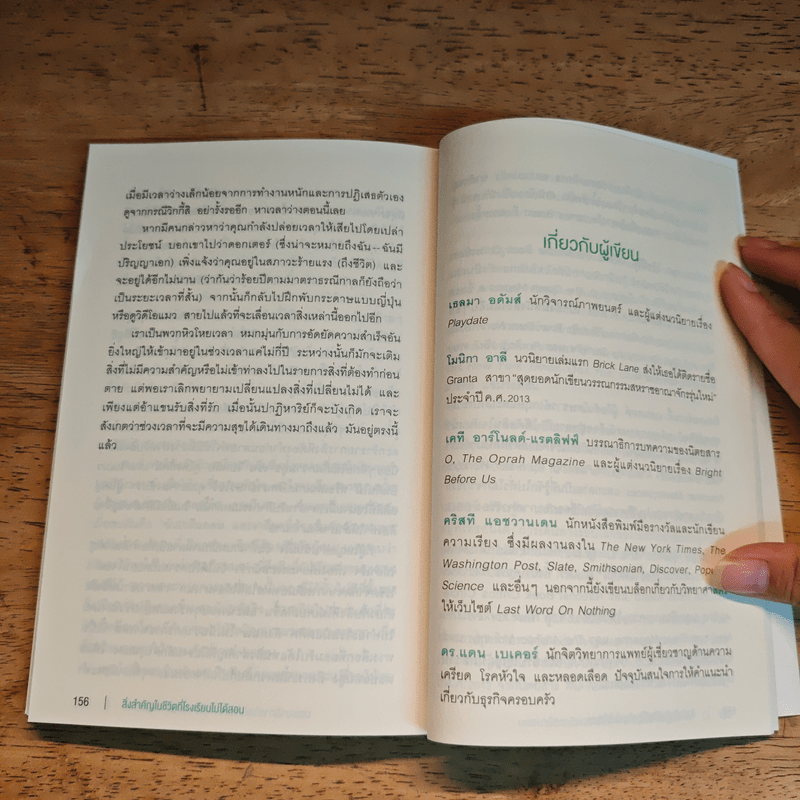 เมื่อมีเวลาว่างเล็กน้อยจากการทำงานหนักและการปฏิเสธตัวเอง
ดูจากกรณีวิกกี้สิ อย่ารั้งรออีก หาเวลาว่างตอนนี้เลย
หากมีคนกล่าวหาว่าคุณกำลังปล่อยเวลาให้เสียไปโดยเปล่า
ประโยชน์ บอกเขาไปว่าดอกเตอร์ (ซึ่งน่าจะหมายถึงฉัน -- ฉันมี
ปริญญาเอก) เพิ่งแจ้งว่าคุณอยู่ในสภาวะร้ายแรง (ถึงชีวิต) และ
จะอยู่ได้อีกไม่นาน (ว่ากันว่าร้อยปีตามมาตราธรณีกาลก็ยังถือว่า
เป็นระยะเวลาที่สั้น) จากนั้นก็กลับไปฝึกพับกระดาษแบบญี่ปุ่น
หรือดูวิดีโอแมว สายไปแล้วที่จะเลื่อนเวลาสิ่งเหล่านี้ออกไปอีก
เราเป็นพวกหิวโหยเวลา หมกมุ่นกับการอัดยัดความสำเร็จอัน
ยิ่งใหญ่ให้เข้ามาอยู่ในช่วงเวลาแค่ไม่กี่ปี ระหว่างนั้นก็มักจะเติม
สิ่งที่ไม่มีความสำคัญหรือไม่เข้าท่าลงไปในรายการสิ่งที่ต้องทำก่อน
ตาย แต่พอเราเลิกพยายามเปลี่ยนแปลงสิ่งที่เปลี่ยนไม่ได้ และ
เพียงแต่อ้าแขนรับสิ่งที่รัก เมื่อนั้นปาฏิหาริย์ก็จะบังเกิด เราจะ
สังเกตว่าช่วงเวลาที่จะมีความสุขได้เดินทางมาถึงแล้ว มันอยู่ตรงนี้
แล้ว
156 | สิ่งสำคัญในชีวิตที่โรงเรียนไม่ได้สอน
เกี่ยวกับผู้เขียน
เธลมา อดัมส์ นักวิจารณ์ภาพยนตร์ และผู้แต่งนวนิยายเรื่อง
Playdate
โมนิกา อาลี นวนิยายเล่มแรก Brick Lane ส่งให้เธอได้ติดรายชื่อ
Granta สาขา "สุดยอดนักเขียนวรรณกรรมสหราชอาณาจักรรุ่นใหม่"
ประจำปี ค.ศ. 2013
เคที อาร์โนลด์-แรตลิฟฟ์ บรรณาธิการบทความของนิตยสาร
O, The Oprah Magazine และผู้แต่งนวนิยายเรื่อง Bright
Before Us
คริสที แอชวานเดน นักหนังสือพิมพ์มือรางวัลและนักเขียน
ความเรียง ซึ่งมีผลงานลงใน The New York Times, The
Washington Post, Slate, Smithsonian, Discover,
Science และอื่นๆ นอกจากนี้ยังเขียนบล็อกเกี่ยวกับ
ให้เว็บไซต์ Last Word On Nothing
ดร.แดน เบเคอร์ นักจิตวิทยาการแพทย์ผู้เชี่ยวชาญด้านความ
เครียด โรคหัวใจ และหลอดเลือด ปัจจุบันสนใจการให้คำแนะนำ
เกี่ยวกับธุรกิจครอบครัว